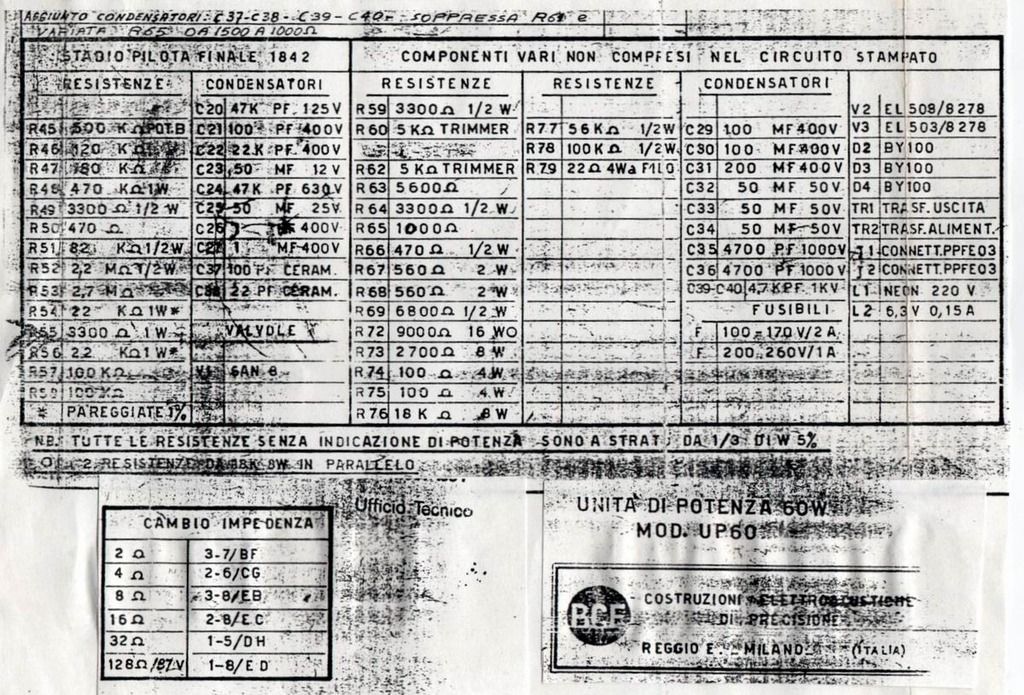 AGGIUNTO CONDENSATORI: C37-C38 - C39 - C40 - SOPPRESSA R61 e
VARIATA R65 DA 1500 A 1000Ω
STADIO PILOTA FINALE 1842
COMPONENTI VARI NON COMPFESI NEL CIRCUITO STAMPATO
RESISTENZE CONDENSATORI RESISTENZE RESISTENZE CONDENSATORI
C20 47K PF 125V R59 3300Ω 1/2 W V2 EL 508/8278
R45 500 KΩ POT.B C21 100 PF 400V R60 5 KΩ TRIMMER R77 56KΩ 1/2W C29 100 MF 400V V3 EL 503/8278
R46 120 KΩ C22 22K PF 400V R78 100KΩ 1/2W C30 100 MF 400V D2 BY100
R47 KΩ C23 50 MF 12V R62 5 KΩ TRIMMER R79 22Ω 4Wa FILO C31 200 MF 400V D3 BY100
R48 470 KΩ 1W C24 47K PF 630V R63 5600Ω C32 50 MF 50V D4 BY100
R49 3300 Ω 1/2 W C25 50 MF 25V R64 3300Ω 1/2W C33 50 MF 50V TR1 TRASF. USCITA
R50 470 Ω C26 400V R65 1000Ω C34 50 MF 50V TR2 TRASF. ALIMENT.
R51 82 KΩ 1/2W C27 1 MF 400V R66 470 Ω 1/2W C35 4700 PF 1000V J1 CONNETT. PPFE03
R52 2,2 MΩ 1/2W C37 100 PF CERAM. R67 560 Ω 2 W C36 4700 PF 1000V J2 CONNETT. PPFE03
R53 2,7 MΩ C38 22 PF CERAM. R68 560 Ω 2 W C39-C40 4,7 KPF. 1KV L1 NEON 220 V
R54 22 KΩ 1W* R69 6800Ω 1/2W FUSIBILI L2 6,3V 0,15A
R55 3300 Ω 1W VALVOLE R72 9000Ω 16 WO F 100-170V/2A
R56 22 KΩ 1W* R73 2700Ω 8 W F 200..260V/1A
R57 100KΩ V1 6AN 8 R74 100 Ω 4W
100KΩ R75 100 Ω 4W
* PAREGGIATE 1% R76 18 K Ω 8W
NB. TUTTE LE RESISTENZE SENZA INDICAZIONE DI POTENZA SONO A STRATO DA 1/3 DI W 5%
O 2 RESISTENZE DA 18K 8W IN PARALLELO
Ufficio Tecnico
CAMBIO IMPEDENZA
2 Ω 3-7/BF
4 Ω 2-6/CG
8 Ω 3-8/EB
16Ω 2-8/EC
32Ω 1-5/DH
128Ω/87V 1-8/ED
UNITÀ DI POTENZA 60W
MOD. UP60
RCF
COSTRUZIONI ELETTROACUSTICHE
DI PRECISIONE
REGGIO E. - MILANO (ITALIA)